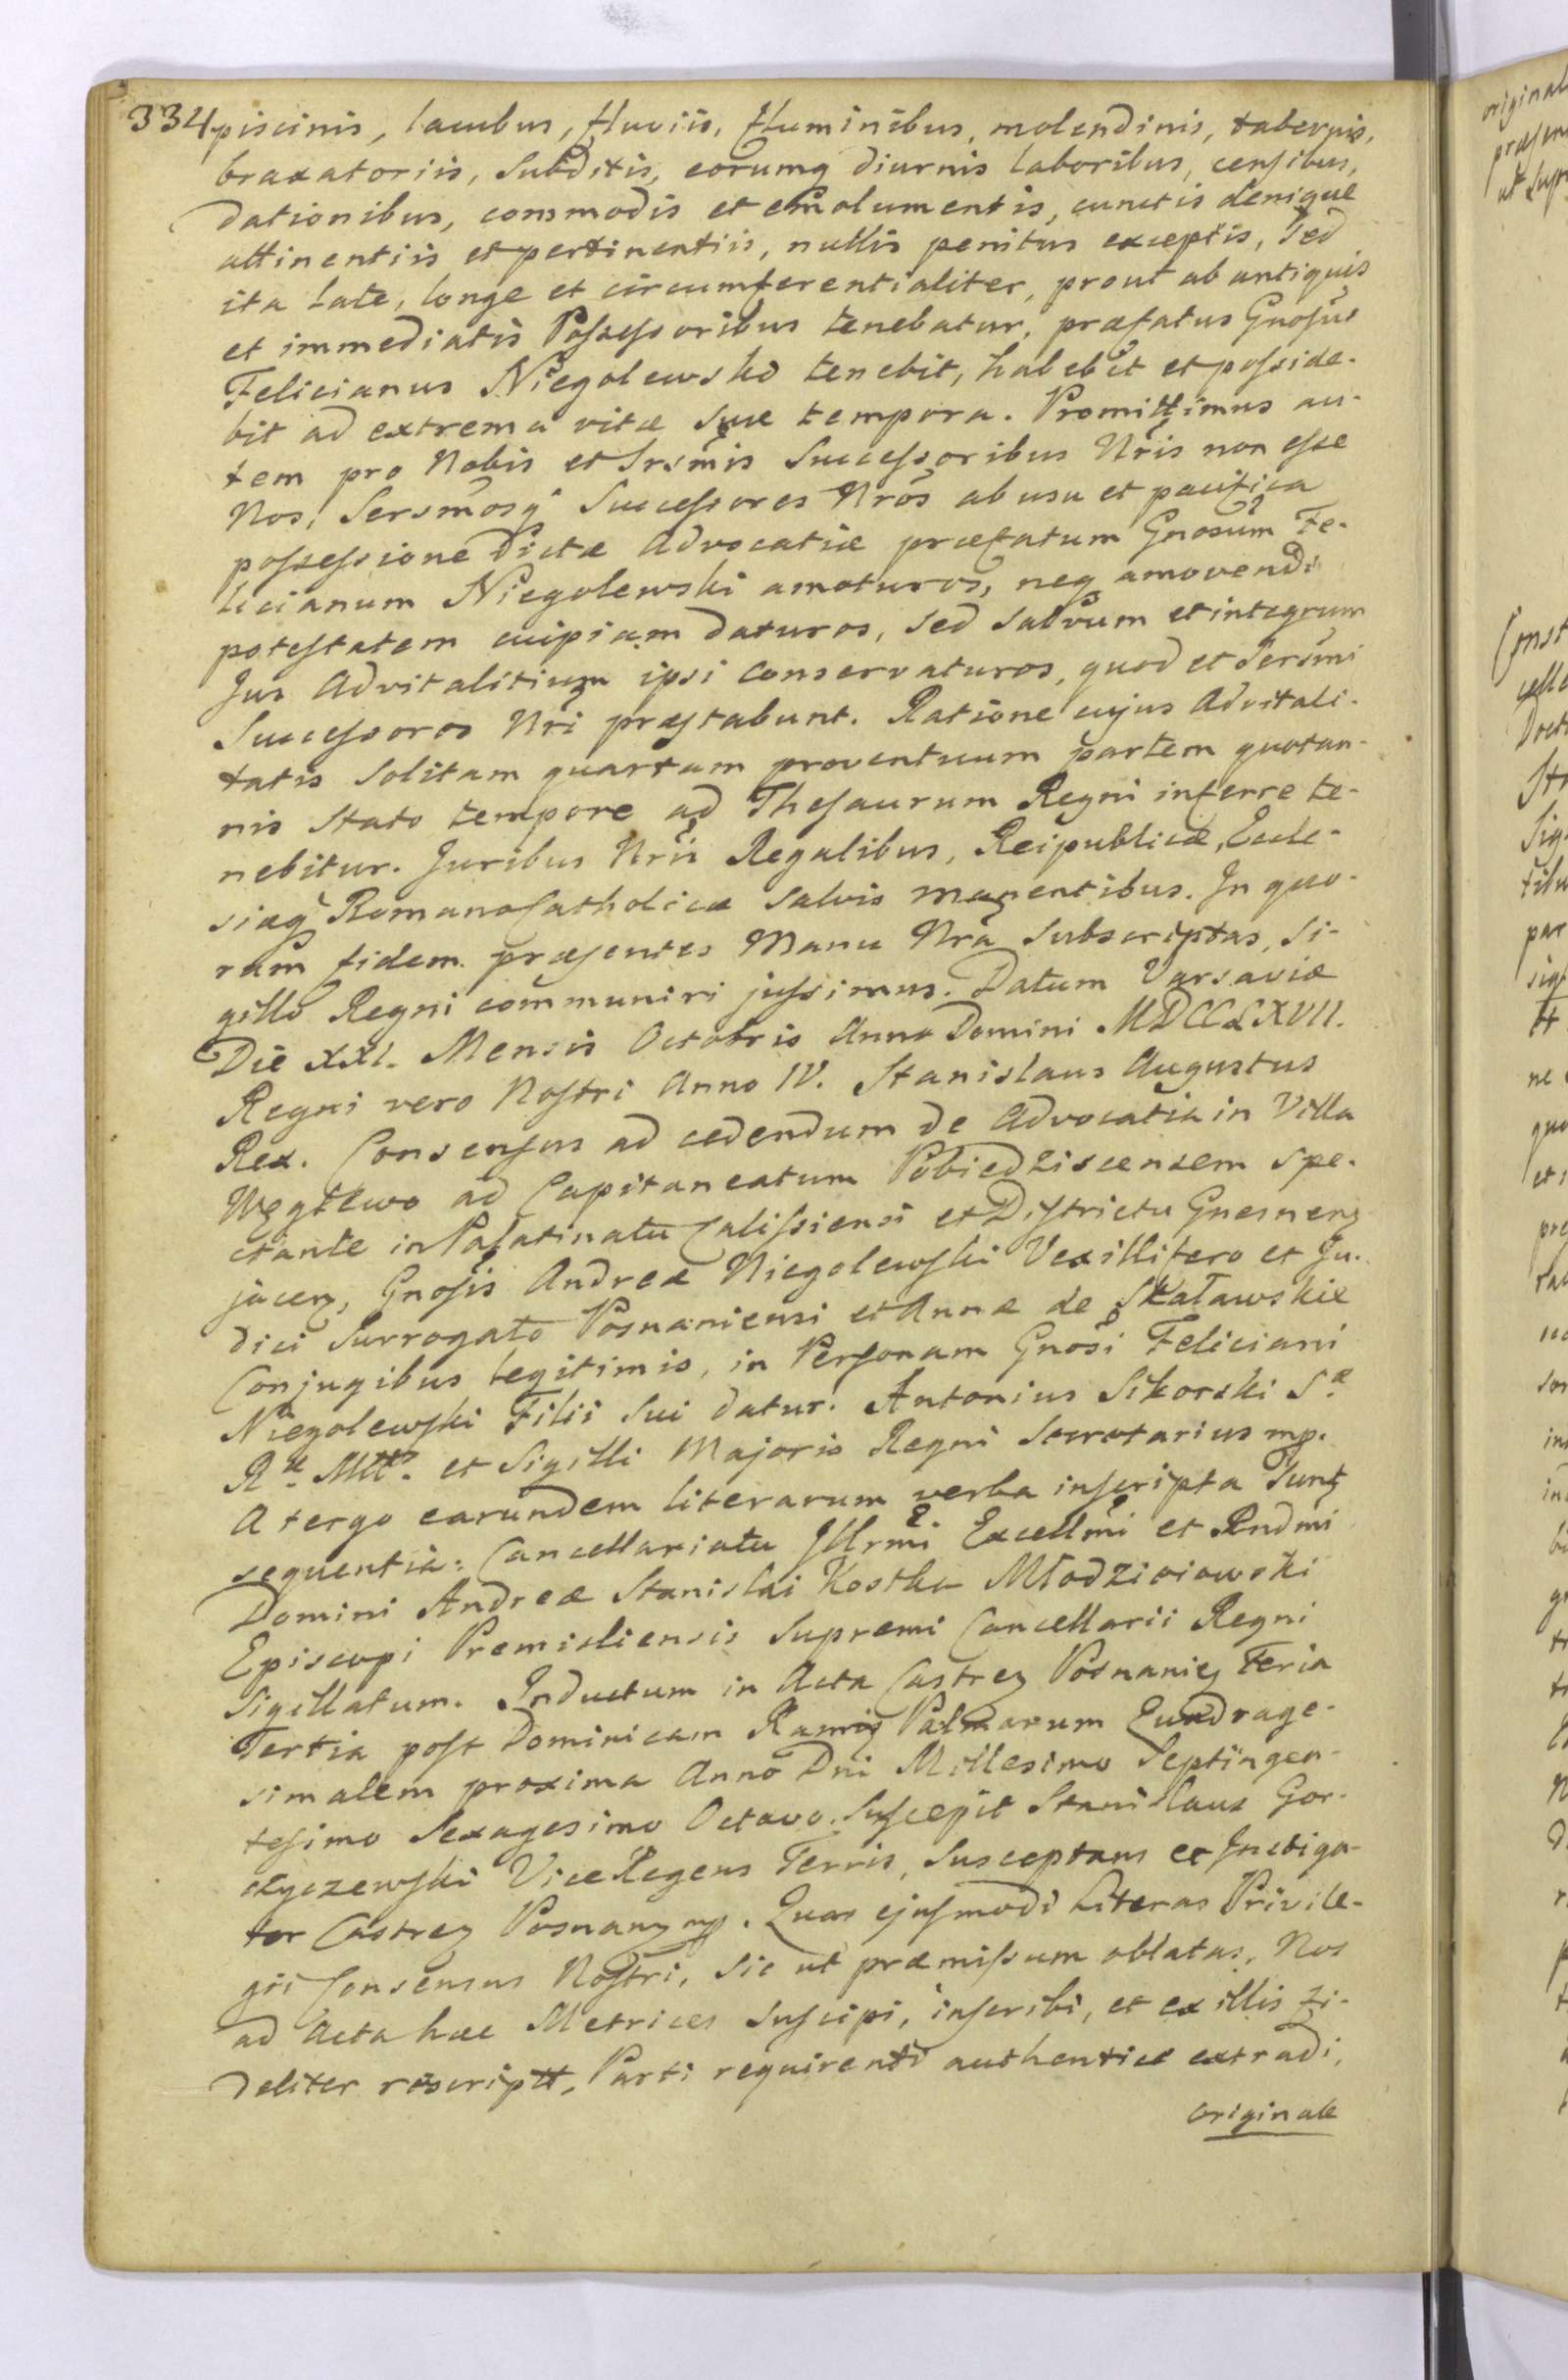 334 piscinis, lacubus, fluviis, fluminibus, molendinis, tabernis,
braxatoriis, Subditis, eorumq diurnis laboribus, censibus,
dationibus, commodis et emolumentis, cunctis denique
attinentiis et pertinentiis, nullis penitus exceptis, Sed
ita late, longe et circumferentialiter, prout ab antiquis
et immediatis Possessoribus tenebatur, præfatus Gnosus
Felicianus Niegolewski tenebit, habebit et posside-
bit ad extrema vitæ suæ tempora. Promittimus au-
tem pro Nobis et Srsmis Successoribus Nris non esse
Nos, Sersmosq Successores Nros ab usu et pacifica
possessione dictæ Advocatiæ præfatum Gnosum Fe-
licianum Niegolewski amoturos, neq amovendi
potestatem cuipiam daturos, sed salvum et integrum
Jus Advitalitium ipsi conservaturos, quod et Sersmi
Successoros Nri præstabunt. Ratione cujus Advitali-
tatis Solitam quartam proventuum partem quotan-
nis Stato tempore ad Thesaurum Regni inferre te-
nebitur. Juribus Nris Regalibus, Reipublicæ, Eccle-
siæq Romano Catholicæ salvis manentibus. In quo-
rum fidem præsentes Manu Nra Subscriptas, Si-
gillo Regni communiri jussimus. Datum Varsaviæ
Die XXI. Mensis Octobris Anno Domini MDCCLXVII.
Regni vero Nostri Anno IV. Stanislaus Augustus
Rex. Consensus ad cedendum de Advocatia in Villa
Węgłewo ad Capitaneatum Pobiedziscensem Spe-
ctante in Palatinatu Calissiensi et Districtu Gnesnenȝ
jacenȝ, Gnosis Andreæ Niegolewski Vexillifero et Ju-
dici Surrogato Posnaniensi et Annæ de Skaławskie
Conjugibus legitimis, in Personam Gnosi Feliciani
Niegolewski Filii Sui datur. Antonius Sikorski Sæ
Ræ Mttis et Sigilli Majoris Regni Secretarius mp.
A tergo earundem literarum verba inscripta Sunt
sequentia: Cancellariatu Illrmi Excellmi et Rndmi
Domini Andreæ Stanislai Kostka Młodzieiowski
Episcopi Premisliensis Supremi Cancellarii Regni
Sigillatum. Inductum in Acta Castrȝ Posnanieȝ Feria
Tertia post Dominicam Ramis Palmarum Quadrage-
simalem proxima Anno Dni Millesimo Septingen-
tesimo Sexagesimo Octavo. Suscepit Stanislaus Gor-
czyczewski Vice Regens Terris, Susceptans et Inctiga-
tor Castrȝ Posnanȝ mp. Quas ejusmodi Literas Privile-
gii Consensus Nostri, sic ut præmissum oblatas, Nos
ad Acta hæc Metrices Suscipi, inscribi, et ex illis fi-
deliter rescriptt, Parti requirenti authentice extradi,
originale